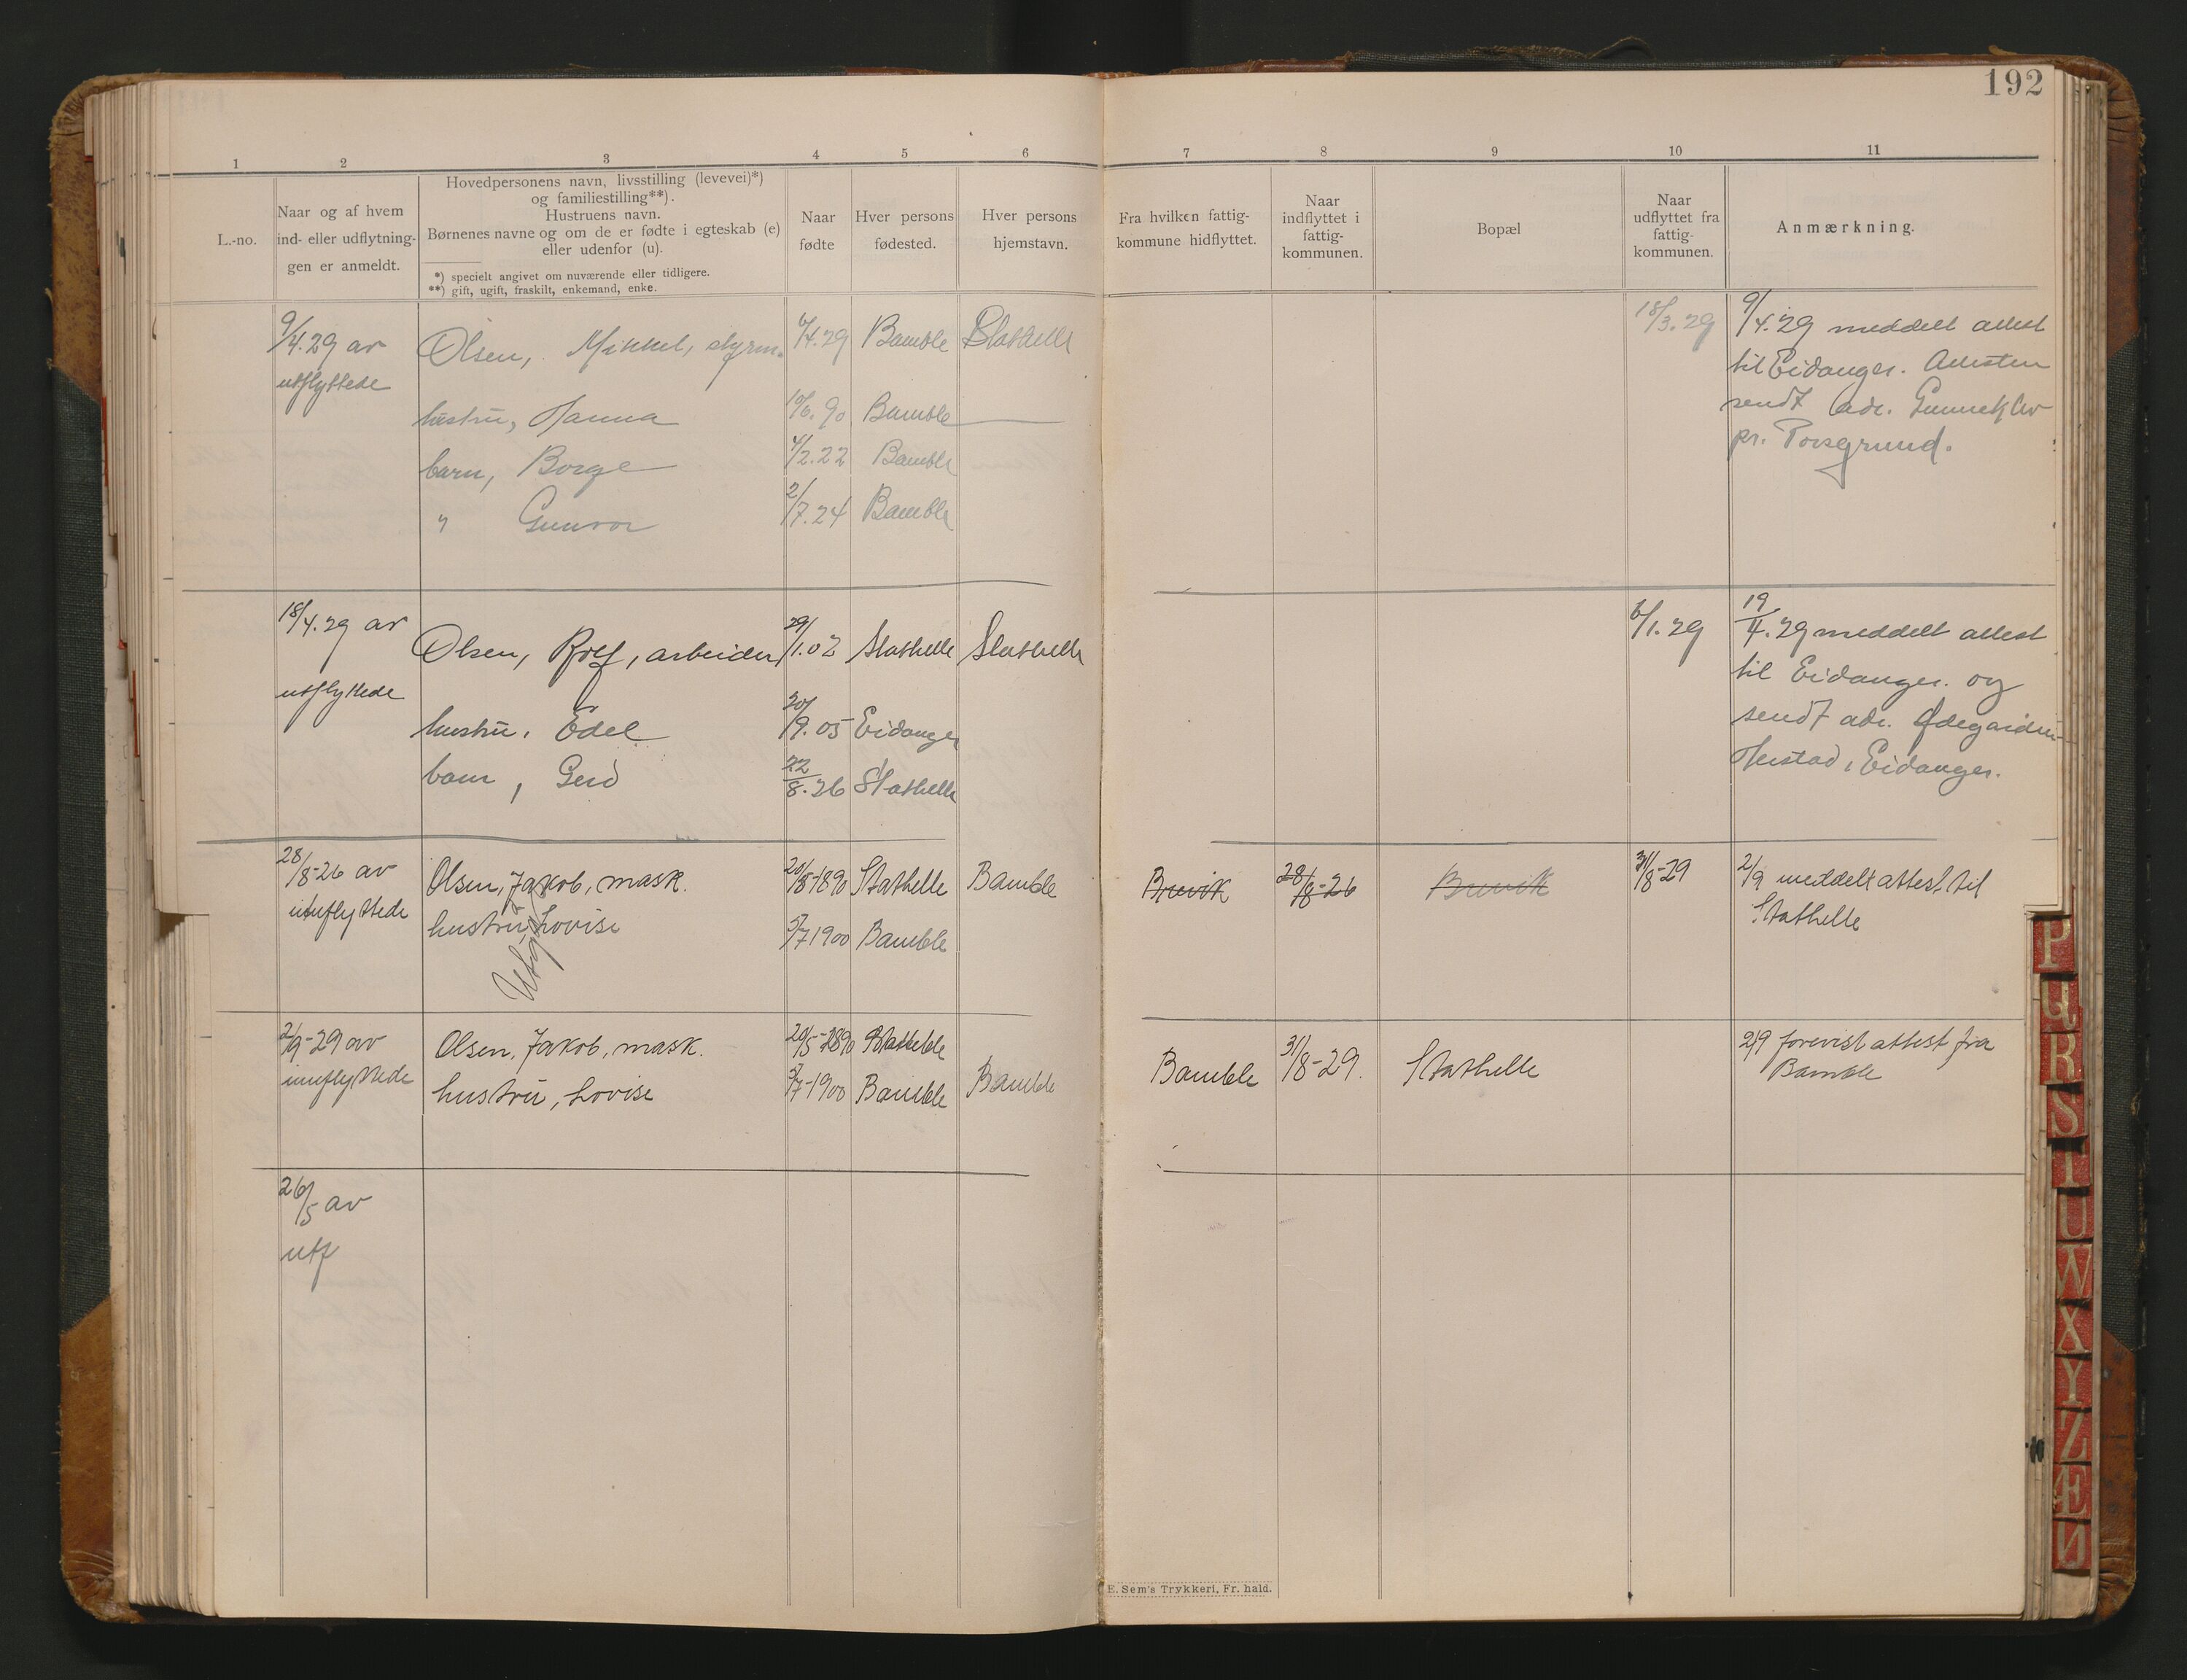 192
1 2 3 4 5 6 7 8 9 10 11
L.-no.
Naar og af hvem
ind- eller udflytnin-
gen er anmeldt.
Hovedpersonens navn, livsstilling (levevei)*)
og familiestilling**).
Hustruens navn.
Børnenes navne og om de er fødte i egteskab (e)
eller udenfor (u).
*) specielt angivet om nuværende eller tidligere.
**) gift, ugift, fraskilt, enkemand, enke.
Naar
fødte
Hver persons
fødested.
Hver persons
hjemstavn.
Fra hvilken fattig-
kommune hidflyttet.
Naar
indflyttet i
fattig-
kommunen.
Bopæl
Naar
udflyttet fra
fattig-
kommunen.
Anmærkning.
9/4.29 av
utflyttede
Olsen, Mikkel, styrm. Bamble Stathelle
hustru, Hanna 10/6.90 Bamble
barn, Borge 4/2.22 Bamble
" Gunvor 2/7.24 Bamble
18/3.29
9/4.29 meddelt attest
til Eidanger. Attesten
sendt adr.
pr. Porsgrund.
18/4.29 av
utflyttede
Olsen, Rolf, arbeider 29/1.02 Stathelle Stathelle
hustru, Edel 20/9.05 Eidanger
barn, Gerd 22/8.26 Stathelle
6/1.29
19/4.29 meddelt attest
til Eidanger. og
sendt adr. Ødegården
Herstad, Eidanger.
28/8-26 av
innflyttede
Olsen, Jakob, mask. 1890 Stathelle Bamble
hustru, Lovise 5/7 1900 Bamble
Utflyttet
Brevik 28/8-26 Brevik 31/8-29
2/9 meddelt attest til
Stathelle
2/9-29 av
innflyttede
Olsen, Jakob, mask. 20/5-1890 Stathelle
hustru, Lovise 5/7-1900 Bamble Bamble
Bamble 31/8-29. Stathelle
2/9 forevist attest fra
Bamble
26/5 av
utf
E. Sem's Trykkeri, Fr.hald.
P
Q
R
S
T
U
W
X
Y
Z
Æ